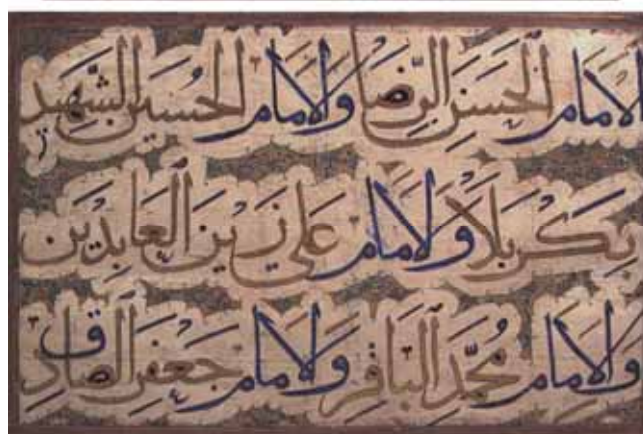 الإمام الحسن الرضا والإمام الحسين الشهيد
بكربلا والإمام علي زين العابدين
والإمام محمد الباقر والإمام جعفر الصادق